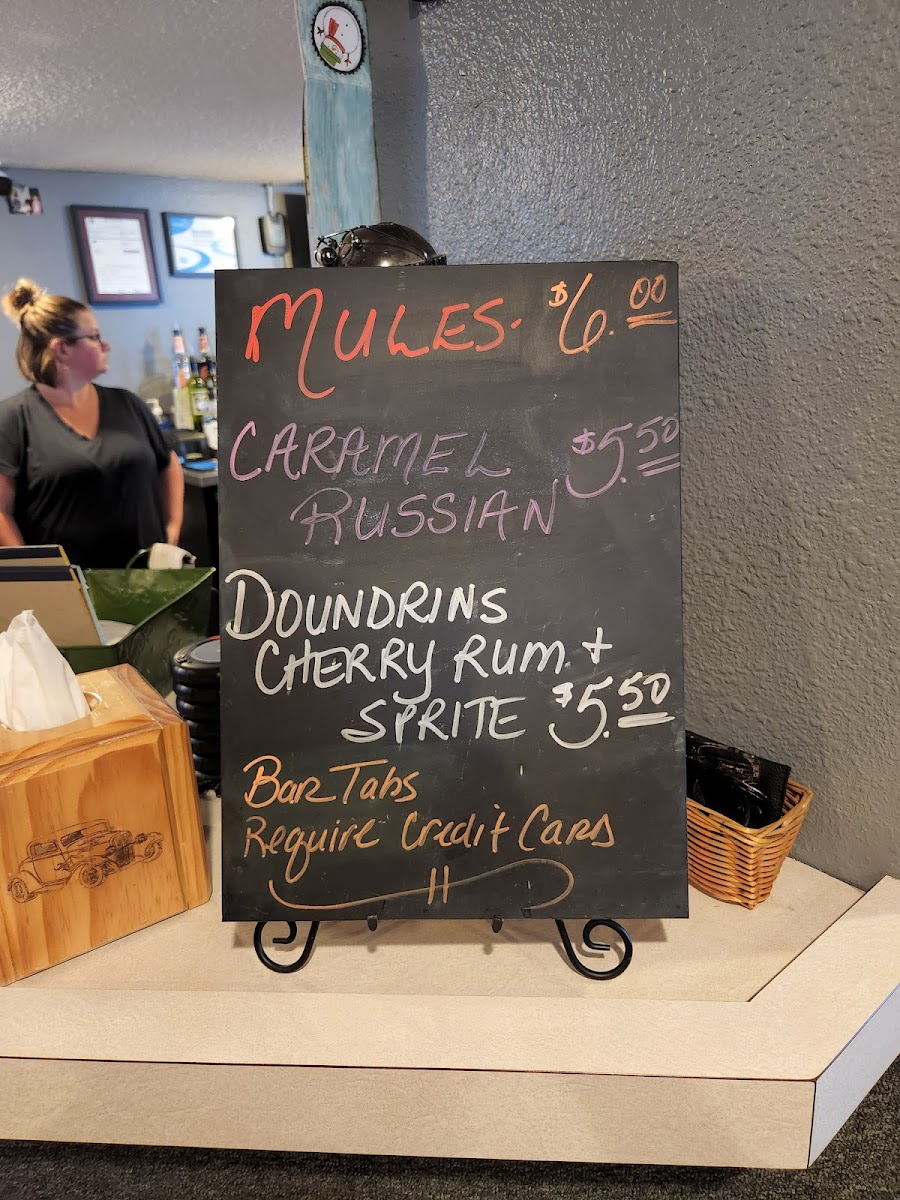 MULES. $6.00
CARAMEL $5.50
RUSSIAN
DOUNDRINS
CHERRY RUM. +
SPRITE $5.50
Bar Tabs
Require Credit Card